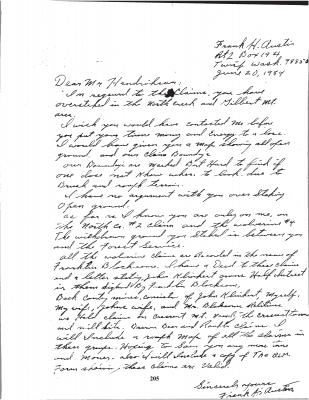 Frank H. Austin
Rt 2 Box 194
Twisp Wash. 98856
June 20, 1984
Dear Mr Hendrickson;
In regard to the Claims, you have
overstaked in the North creek and Gilbert Mt
area
I wish you would have contacted Me before
you put your time money and Energy to a loss.
I would have given you a Map showing all open
ground, and our Claim Boundrys
our Boundrys are Marked But Hard to find if
one does not Know where to look due to
Brush and rough terrain.
I have no argument with you over Staking
Open ground,
as far as I know you are only on me, on
The North Cr. #2 claim and the #4
The ground you Staked is between you
and the Forest Service.
all the claims are located in the name of
Franklin Blacksome. I have a Deed to these claims
and a letter stating John Kleinhart owns Half Interest
in them signed by Franklin Blacksome,
Back County consists of John Kleinhart, Myself,
My wife, wife, and Mr. Blacksome
we Hold claims on Mt.
and . Claims. I
will Include a rough Map of all the claims in
these groups. Hoping to Save you any more time
and Money. also I will Include a copy of The BLM
Form showing these Claims are Valid.
205
Sincerely yours
Frank H. Austin